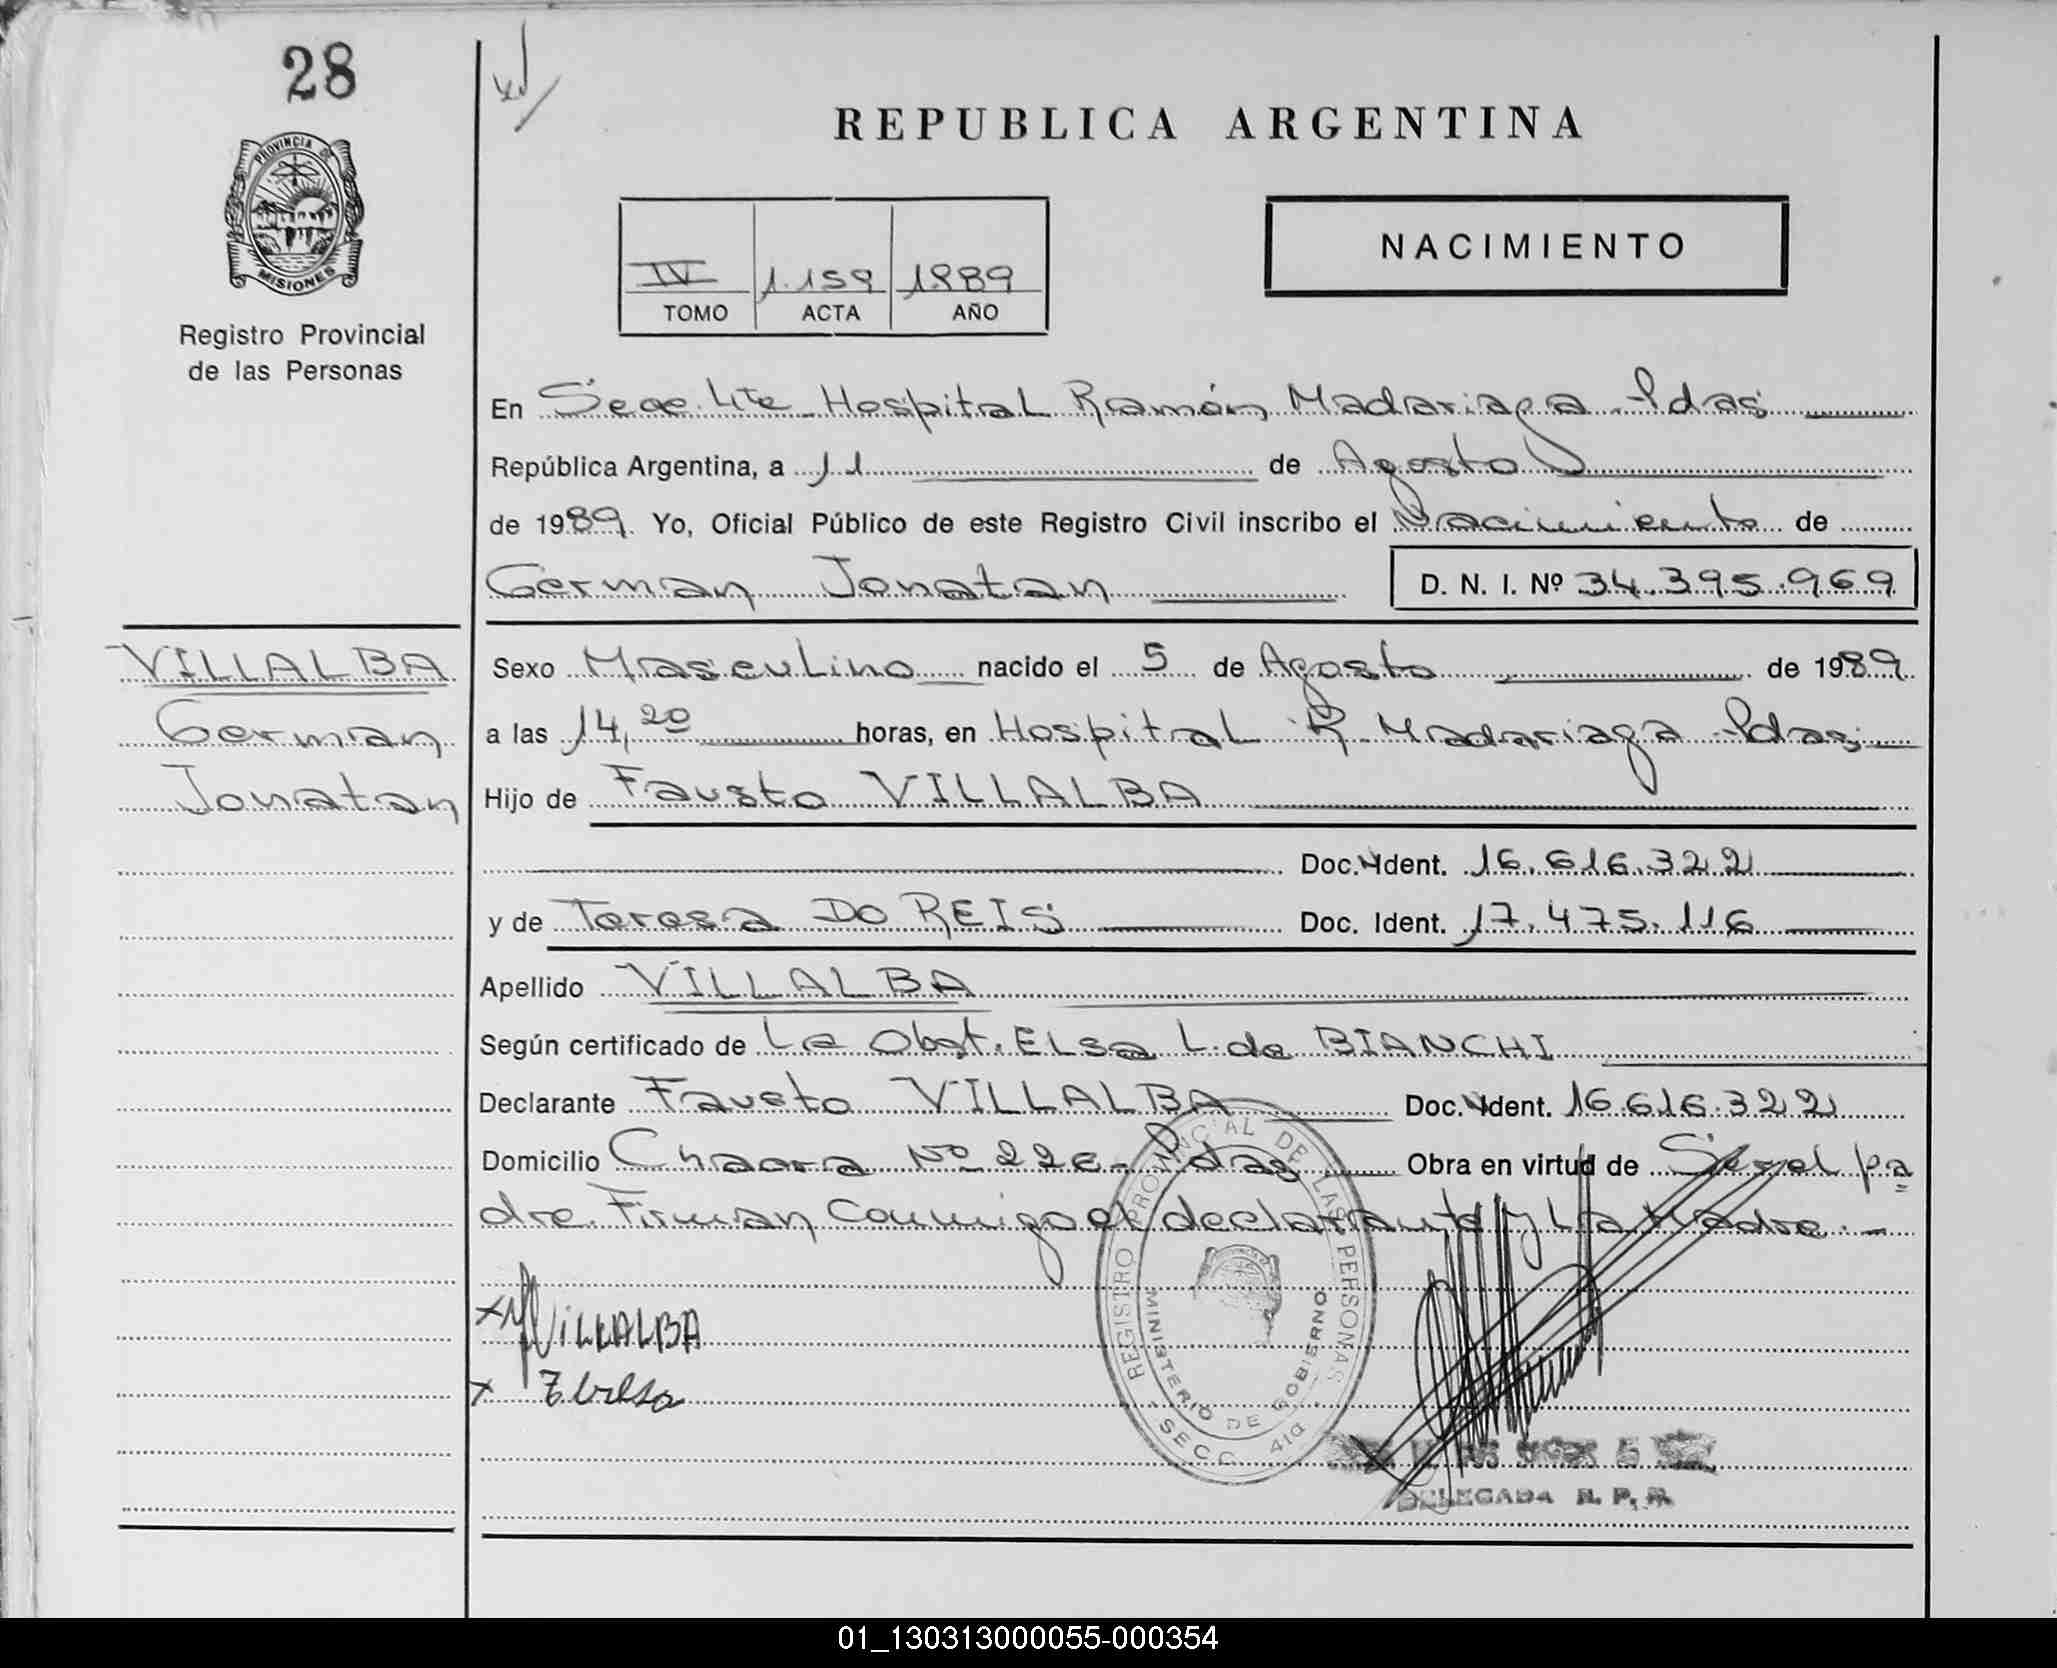 28
REPUBLICA ARGENTINA
PROVINCIA DE
MISIONES
Registro Provincial
de las Personas
NACIMIENTO
IV 1.159 1989
TOMO ACTA AÑO
En Secc. Hospital Ramón Madariaga - Pdas
República Argentina, a 11 de Agosto
de 1989. Yo, Oficial Público de este Registro Civil inscribo el Nacimiento de
German Jonatan D. N. I. Nº 34.395.969
VILLALBA
German
Jonatan
Sexo Masculino nacido el 5 de Agosto de 1989
a las 14,20 horas, en Hospital R. Madariaga - Pdas
Hijo de Fausto VILLALBA
Doc. Ident. 16.616.322
y de Teresa DO REIS Doc. Ident. 17.475.116
Apellido VILLALBA
Según certificado de La Obst. Elsa L. de BIANCHI
Declarante Fausto VILLALBA Doc. Ident. 16.616.322
Domicilio Chacra Nº Pdas Obra en virtud de Ser el pa
dre. Firman Conmigo el declarante y La Madre.-
VILLALBA
REGISTRO PROVINCIAL DE LAS PERSONAS
MINISTERIO DE GOBIERNO
SECC. 41a
DELEGADA R. P. P.
01_130313000055-000354